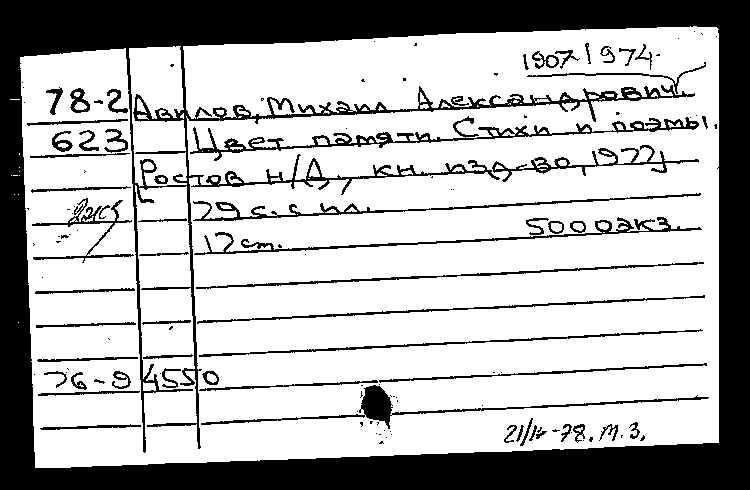 1907-1974.
78-2 Авилов, Михаил Александрович.
623 Цвет памяти. Стихи и поэмы.
[Ростов н/Д., кн. изд-во, 1977]
79 с. с ил.
17 см. 5000экз.
76-94550
78. М.З.